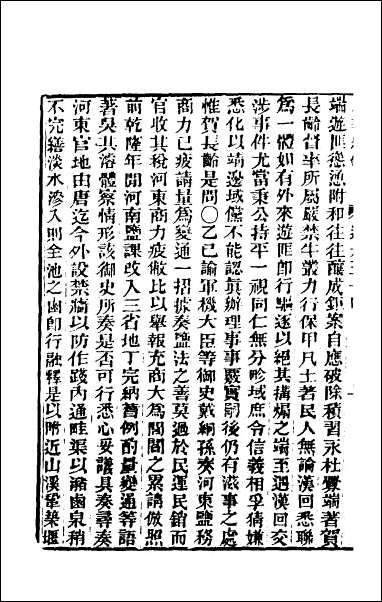 端遊匪從慫慂附和往往釀成鉅案自應破除積習永杜釁端著賀
長齡督率所屬嚴禁牛叢力行保甲凡土著民人無論漢回悉聯
爲一體如有外來遊匪卽行驅逐以絕其搆煽之端至遇漢回交
涉事件尤當秉公持平一視同仁無分畛域庶令信義相孚猜嫌
悉化以靖邊域儻不能認眞辦理事事覈實嗣後仍有滋事之處
惟賀長齡是問〇乙巳諭軍機大臣等御史戴絅孫奏河東鹽務
商力已疲請量爲變通一摺據奏鹽法之善莫過於民運民銷而
官收其稅河東商力疲敝比以舉報充商大爲閭閻之累請倣照
前乾隆年閒河南鹽課改入三省地丁完納舊例酌量變通等語
著吳其濬體察情形該御史所奏是否可行悉心妥議具奏尋奏
河東官地由唐迄今外設禁牆以防作踐內通畦渠以瀦鹵泉稍
不完繕淡水滲入則全池之鹵卽行融釋是以附近山溪鞏築堰